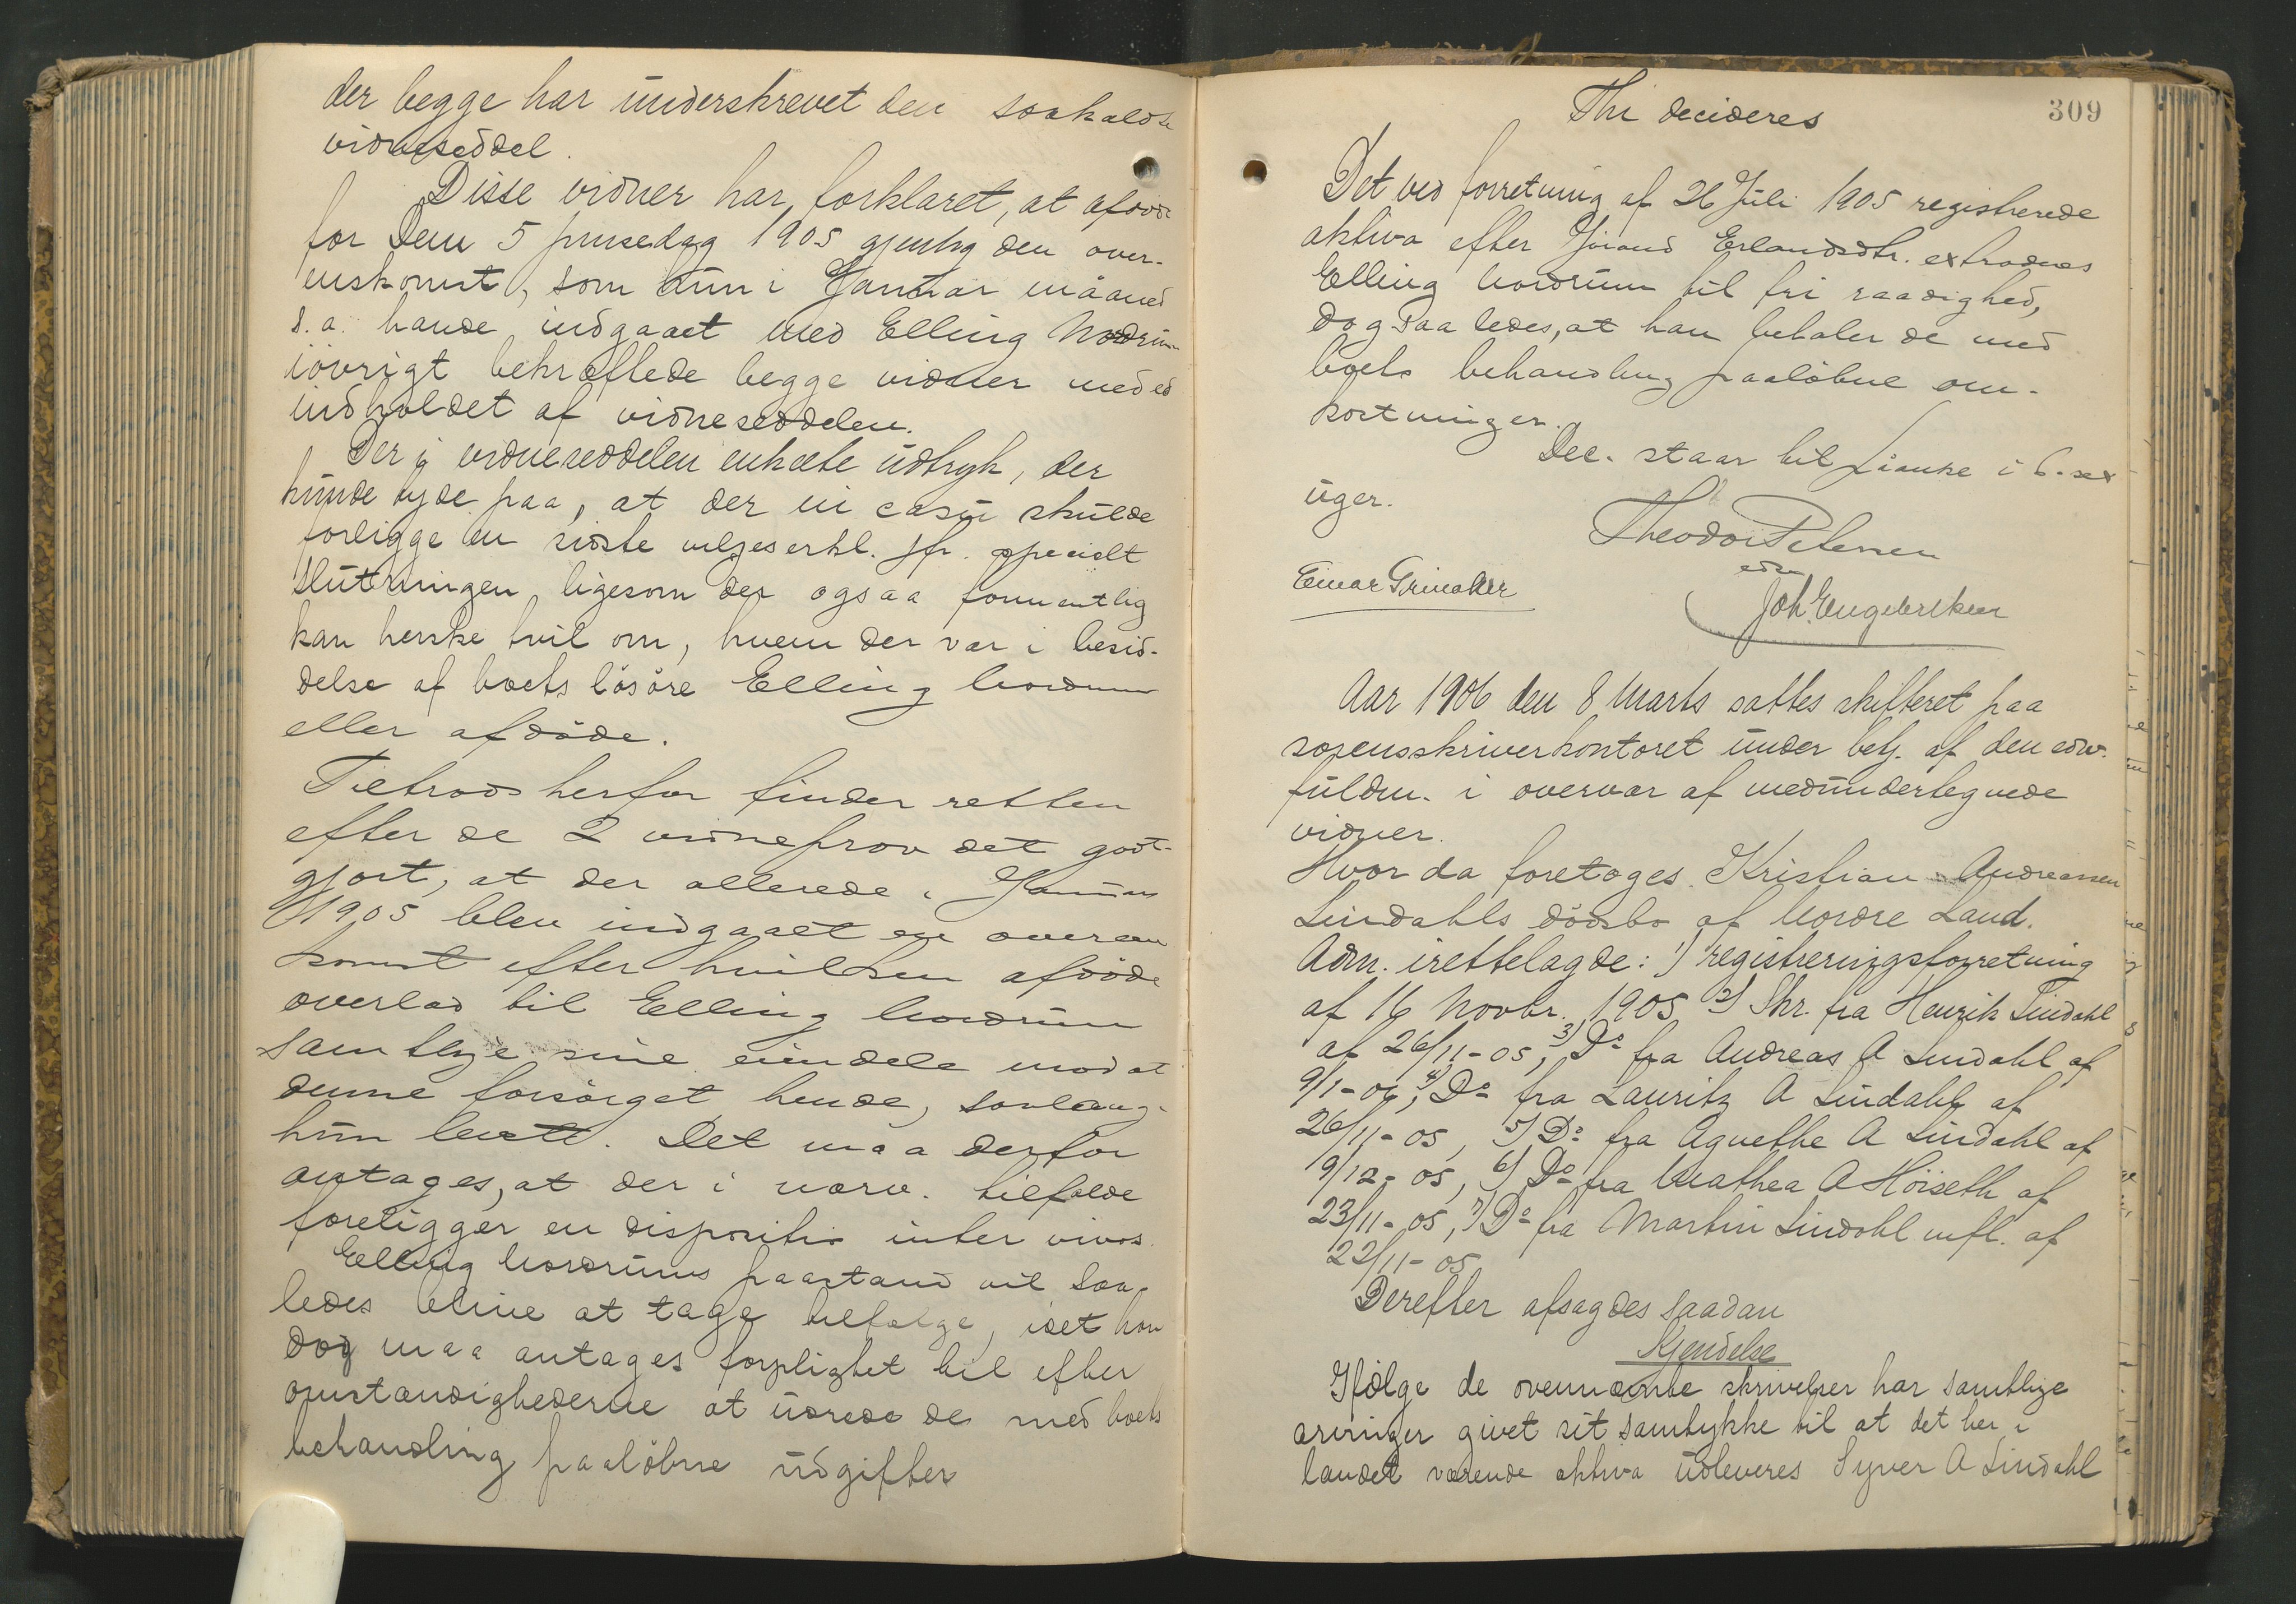 der begge har underskrevet den saakaldte
vidneseddel.
Disse vidner har forklaret, at afdöde
for dem 5 pinsedag 1905 gjentog den over-
enskomst, som hun i Januar måaned
s.a. havde indgaaet med Elling Nordrum
iövrigt bekræftede begge vidner med ed
indholdet af vidneseddelen.
Der i vidneseddelen enkelte udtryk, der
kunde tyde paa, at der in casu skulde
foreligge en sidste viljeserkl. jfr. specielt
slutningen, ligesom der ogsaa formentlig
kan herske tvil om, hvem der var i besid-
delse af boets lösöre Elling Nordrum
eller afdöde.
Tiltrods herfor finder retten
efter de 2 vidneprov det godt-
gjort, at der allerede i Januar
1905 blev indgaaet en overen
komst efter hvilken afdöde
overlod til Elling Nordrum
samtlige sine eiendele mod at
denne forsörget hende, saalæng
hun levet. Det maa derfor
antages, at der i nærv. tilfælde
foreligger en disposition inter vivos.
Elling Nordrums paastand vil saa-
ledes blive at tage tilfølge, idet han
dog maa antages forpligtet til efter
omstændighederne at udrede de med boets
behandling paalöbne udgifter
309
Thi decideres
Det ved forretning af 26 Juli 1905 registrerede
aktiva efter Jörand Erlandsdtr. extraderes
Elling Nordrum til fri raadighed,
dog saaledes, at han betaler de med
boets behandling paalöbne om-
kostninger.
Dec. staar til Lianke i 6. sex
uger.
Theodor Petersen
edsv
Einar Grinaker
Joh. Engebretsen
Aar 1906 den 8 Marts sattes skifteret paa
sorenskriverkontoret under betj. af den edsv.
fuldm. i overvær af medundertegnede
vidner.
Hvor da foretoges Kristian Andreassen
Lindahls dödsbo af Nordre Land.
Adm. irettelagde: 1) registreringsforretning
af 16 Novbr. 1905 2) Skr. fra Henrik Lindahl
af 26/11-05, 3) Do fra Andreas A Lindahl af
9/1-06, 4) Do fra Lauritz A Lindahl af
26/11-05, 5) Do fra Agnethe A Lindahl af
9/12-05, 6) Do fra Mathea A Höiseth af
23/11-05, 7) Do fra Martin Lindahl mfl. af
22/11-05
Derefter afsagdes saadan
Kjendelse
Ifölge de ovennævnte skrivelser har samtlige
arvinger givet sit samtykke til at det her i
landet værende aktiva udleveres Syver A Lindahl